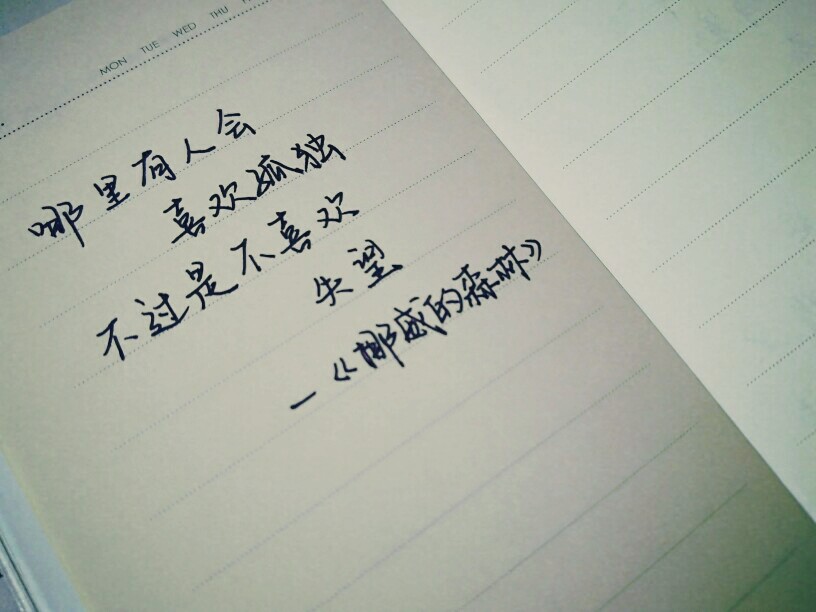 MON TUE WED THU
哪里有人会
喜欢孤独
不过是不喜欢
失望
—《挪威的森林》